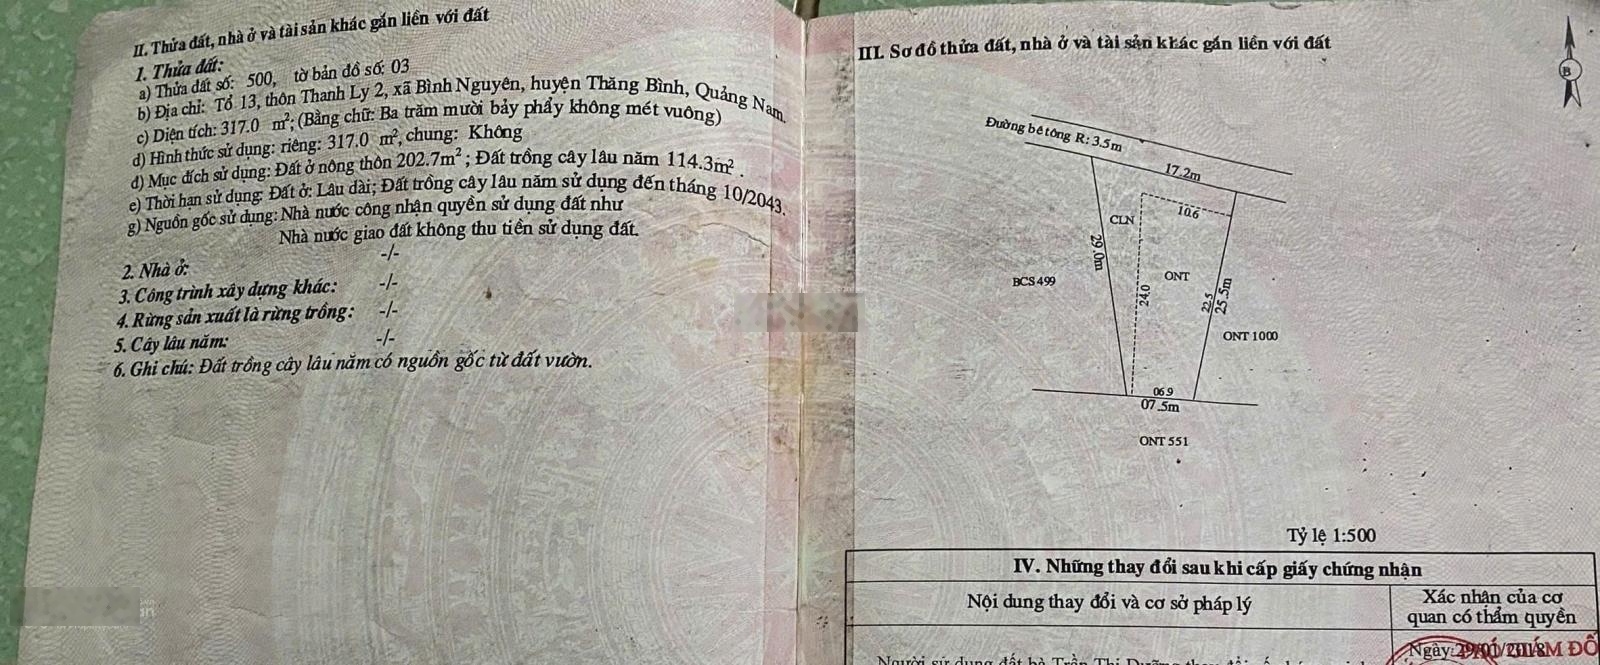 II. Thửa đất, nhà ở và tài sản khác gắn liền với đất
1. Thửa đất:
a) Thửa đất số: 500, tờ bản đồ số: 03
b) Địa chỉ: Tổ 13, thôn Thanh Ly 2, xã Bình Nguyên, huyện Thăng Bình, Quảng Nam.
c) Diện tích: 317.0 m²; (Bằng chữ: Ba trăm mười bảy phẩy không mét vuông)
d) Hình thức sử dụng: riêng: 317.0 m², chung: Không
đ) Mục đích sử dụng: Đất ở nông thôn 202.7m²; Đất trồng cây lâu năm 114.3m².
e) Thời hạn sử dụng: Đất ở: Lâu dài; Đất trồng cây lâu năm sử dụng đến tháng 10/2043.
g) Nguồn gốc sử dụng: Nhà nước công nhận quyền sử dụng đất như
Nhà nước giao đất không thu tiền sử dụng đất.
2. Nhà ở: -/-
3. Công trình xây dựng khác: -/-
4. Rừng sản xuất là rừng trồng: -/-
5. Cây lâu năm: -/-
6. Ghi chú: Đất trồng cây lâu năm có nguồn gốc từ đất vườn.
III. Sơ đồ thửa đất, nhà ở và tài sản khác gắn liền với đất
B
Đường bê tông R: 3.5m
17.2m
10.6
CLN
29.0m
ONT
BCS 499
24.0
22.5
25.5m
ONT 1000
06.9
07.5m
ONT 551
Tỷ lệ 1:500
IV. Những thay đổi sau khi cấp giấy chứng nhận
Nội dung thay đổi và cơ sở pháp lý
Xác nhận của cơ
quan có thẩm quyền
Ngày: 29/01/2018
Người sử dụng đất bà Trần Thị Dưỡng